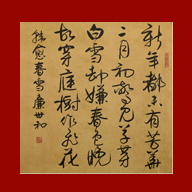 新年都未有芳華
二月初驚見草芽
白雪却嫌春色晚
故穿庭樹作飛花
韓愈春雪廉世和